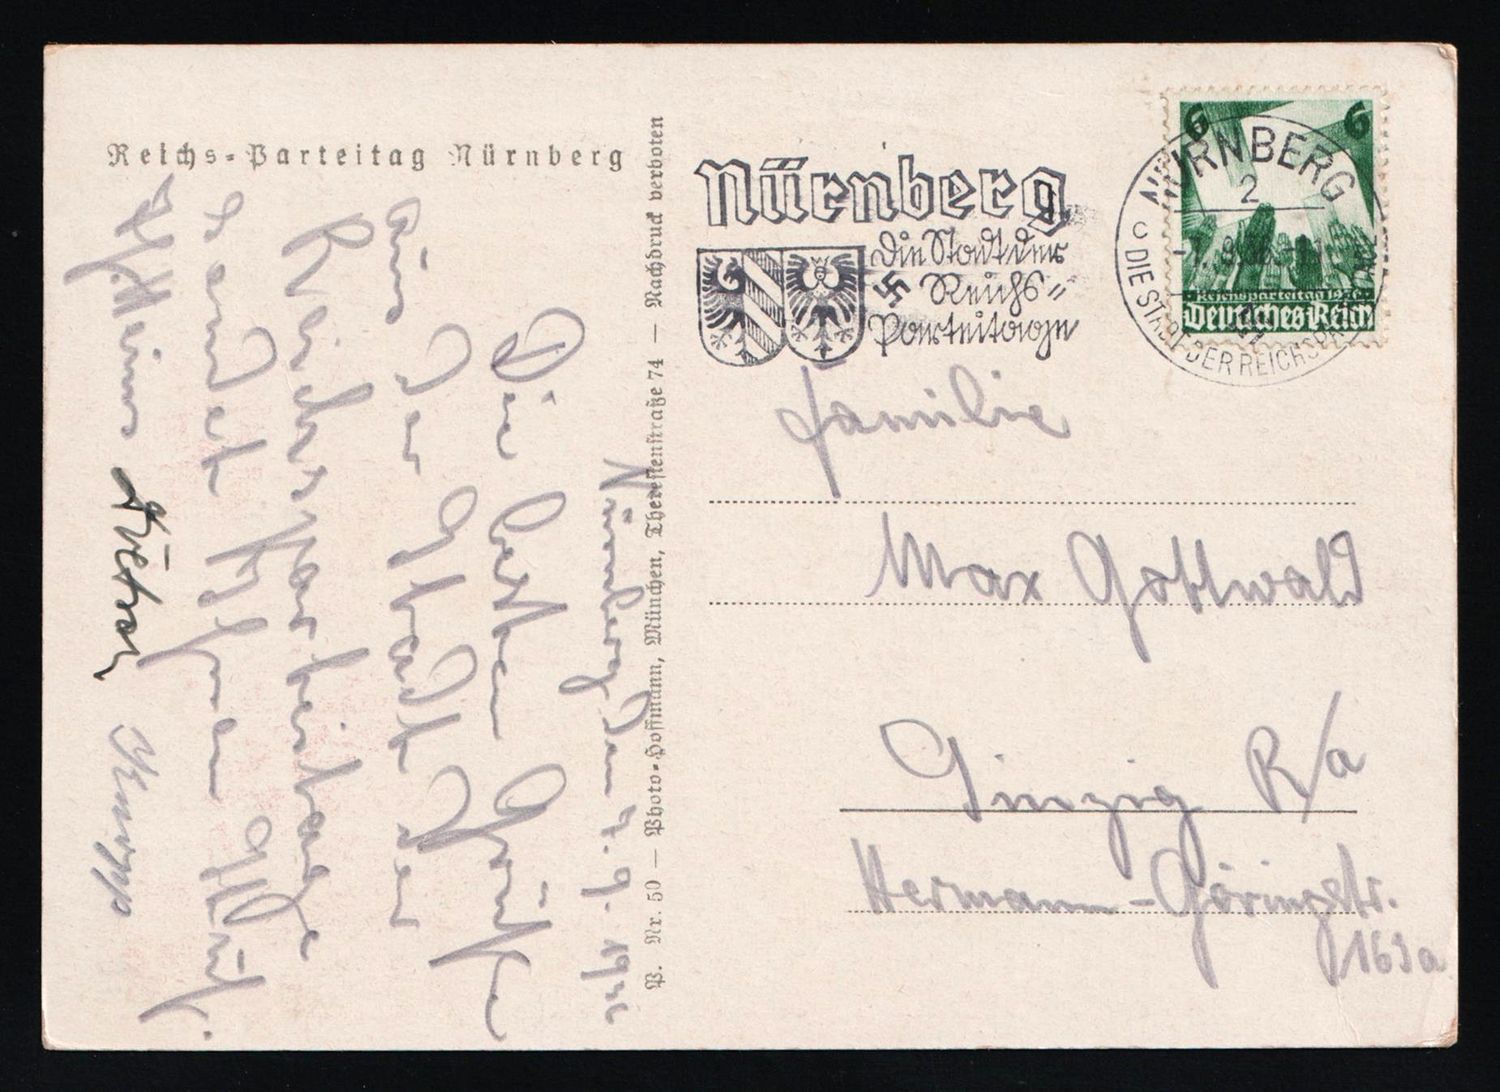 Reichs-Parteitag Nürnberg
Nürnberg, den 7.9.19
Die besten Grüße
aus der Stadt der
Reichsparteitage
sendet Ihnen
Knopp
P. Nr. 50 — Photo-Hoffmann, München, Theresienstraße 74 — Nachdruck verboten
Nürnberg
Die Stadt der
Reichs=
Parteitage
NÜRNBERG
2
c
DIE STADT DER REICHSPARTEITAGE
6 6
Reichsparteitag 1936
Deutsches Reich
Familie
Max Gottwald
R/a
Hermann-Göringstr.
163a